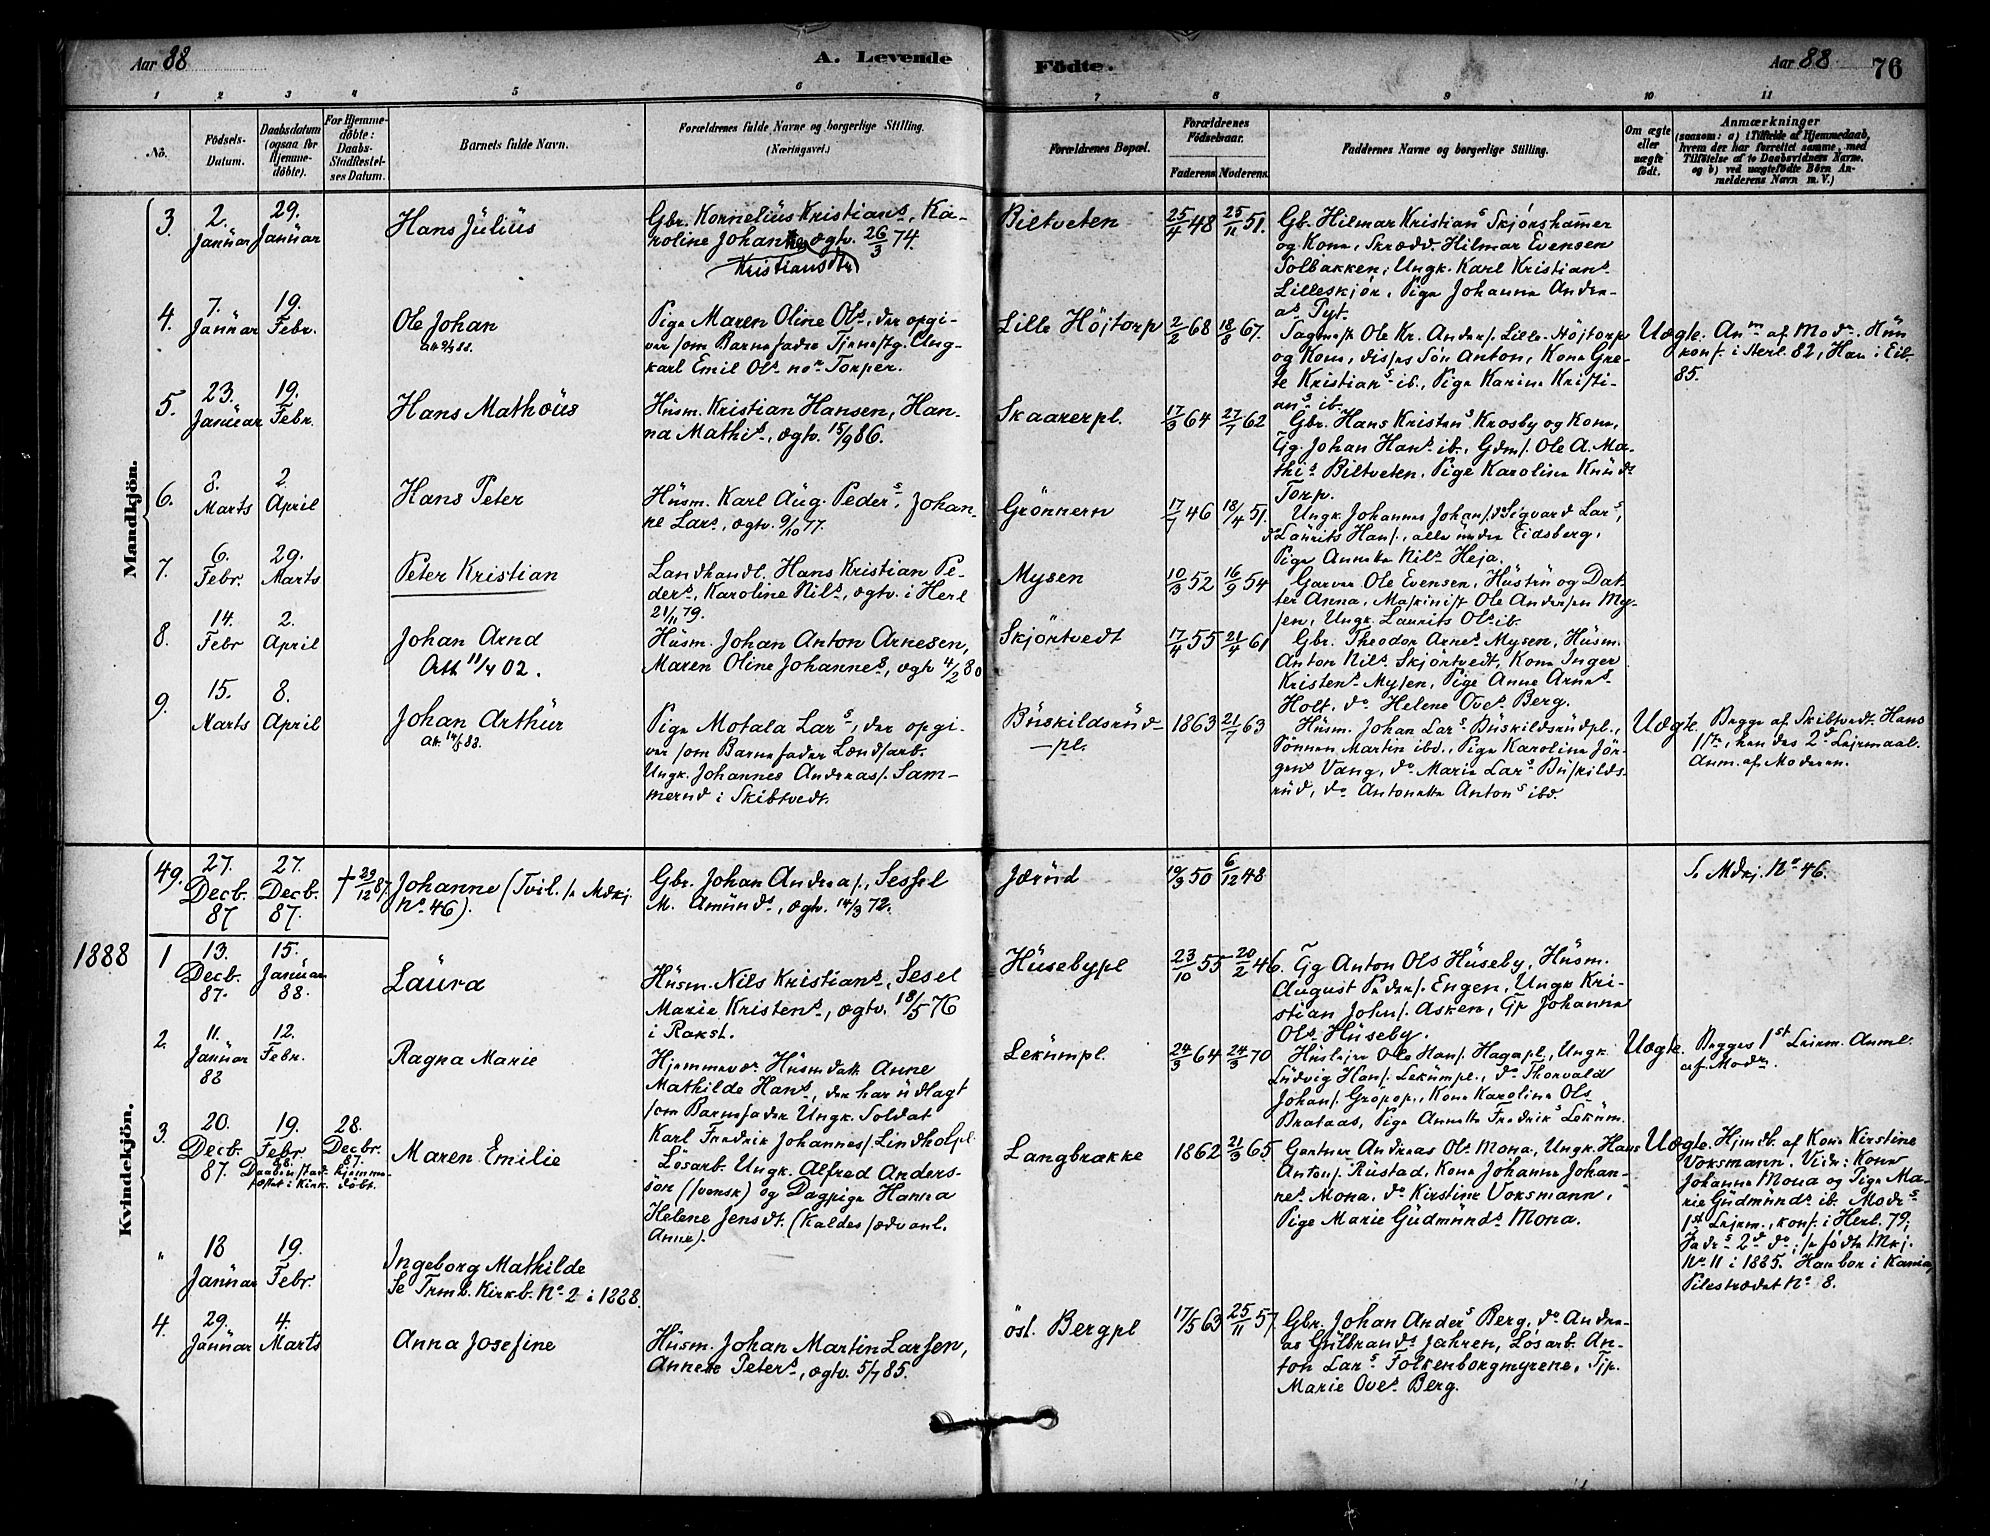 Aar 88
A. Levende
Födte.
Aar 88
76
1 2 3 4 5 6 7 8 9 10 11
No.
Födsels-Datum.
Daabsdatum (ogsaa for Hjemme-döbte).
For Hjemme-döbte: Daabs-Stadfæstel-ses Datum.
Barnets fulde Navn.
Forældrenes fulde Navne og borgerlige Stilling.
(Næringsvei.)
Forældrenes Bopæl.
Forældrenes Födselsaar.
Faderens Moderens
Faddernes Navne og borgerlige Stilling.
Om ægte eller uægte födt.
Anmærkninger
(saasom: a) i Tilfælde af Hjemmedaab, hvem der har forrettet samme, med Tilföielse af to Daabsvidners Navne, og b) ved uægtefödte Börn Anmelderens Navn m. V.)
Mandkjön.
3. 2. Januar 29. Januar
Hans Julius
Gbr. Kornelius Kristians., Ka-
roline Johan ægtv. 26/3 74.
Kristiansdtr
Biltveten
25/4 48 25/11 51.
Gb. Hilmar Kristians Skjönshamer
og Kone, Skrædd. Hilmar Evensen
Solbakken, Ungk. Karl Kristians.
Lilleskjör, Pige Johanne Andre-
as. Pyt.
4. 7. Januar 19. Febr.
Ole Johan
Pige Maren Oline Ols., der opgi-
ver som Barnefader Tjenestg. Ung-
karl Emil Ols. no. Torper.
Lille Höjtorp
2/2 68 18/8 67.
Sagmest. Ole Kr. Anders. Lille-Höjtorp
og Kone, disses Sön Anton, Kone Gre-
te Kristians ib., Pige Karine Kristi-
ans ib.
Uægte. Anm. af Modr. Hun
konf. i Herl. 82, Han i Eil.
85.
5. 23. Januar 19. Febr.
Hans Mathöus
Husm. Kristian Hansen, Han-
na Mathis., ægtv. 15/9 86.
Skaarerpl.
17/3 64 27/7 62
Gbr. Hans Kristens Krosby og Kone,
Gg. Johan Hans. ib., Gdm/. Ole A. Ma-
this. Biltveten, Pige Karoline Knuds
Torp.
6. 8. Marts 2. April
Hans Peter
Husm. Karl Aug. Peders., Johan-
ne Lars., ægtv. 9/10 77.
Grönnern
17/7 46 18/4 51.
Ungk. Johannes Johans/. do Sigvard Lars.,
do Laurits Hans/., alle under Eidsberg,
Pige Annette Nils. Heja.
7. 6. Febr. 29. Marts
Peter Kristian
Landhandl. Hans Kristian Pe-
ders., Karoline Nils., ægtv. i Herl
21/11 79.
Mysen
10/3 52 16/9 54
Garver Ole Evensen, Hustru og Dat-
ter Anna, Maskinist Ole Andersen My-
sen, Ungk. Laurits Ols. ib.
8. 14. Febr 2. April
Johan Arnd
Att. 11/4 02.
Husm. Johan Anton Arnesen,
Maren Oline Johannes., ægtv 4/2 80
Skjörtvedt
17/4 55 21/4 61
Gbr. Theodor Arnes. Mysen, Husm.
Anton Nils. Skjörtvedt, Kone Inger
Kristens. Mysen, Pige Anne Arnes.
Holt, do Helene Oves. Berg.
9. 15. Marts 8. April
Johan Arthur
Att. 14/5 88.
Pige Motala Lars., der opgi-
ver som Barnefader Landsarb.
Ungk. Johannes Andreas/. Sam-
merud i Skibtvedt.
Buskildsrud-
pl.
1863 21/7 63
Husm. Johan Lars. Buskildsrudpl.,
Sönnen Martin ibd., Pige Karoline Jör-
gens Vang, do Marie Lars. Buskilds-
rud, do Antonette Antons ibd.
Uægte. Begge af Skibtvedt. Hans
1ste, hendes 2d Lejermaal.
Anm. af Moderen.
Kvindekjön.
49. 27. Decb. 87 27. Decb. 87. † 29/12 87.
Johanne (Tvil. se Mdkj.
No 46).
Gbr. Johan Andreas/., Sessel
M. Amunds., ægtv. 14/3 72.
Jærud
19/3 50 6/12 48
Se Mdkj. No 46.
1888
1 13. Decb. 87. 15. Januar 88.
Laura
Husm. Nils Kristians., Sesel
Marie Kristens., ægtv. 18/5 76
i Rakst.
Husebypl
23/10 55 20/2 46.
Gg Anton Ols Huseby, Husm.
August Peders/. Engen, Ungk Kri-
stian Johns/. Asken, Gp Johanne
Ols. Huseby.
2. 11. Januar 88 12. Febr.
Ragna Marie
Hjemmevr. Husmdatt. Anne
Mathilde Hans., der har udlagt
som Barnefader Ungk. Soldat
Karl Fredrik Johannes/. Lindholpl.
Lekumpl.
24/3 64 24/3 70
Huslejer Ole Hans/. Hagapl., Ungk.
Ludvig Hans/. Lekumpl., do Thorvald
Johans/. Gropop., Kone Karoline Ols.
Brataas, Pige Annette Fredriks Lekum.
Uægte. Begges 1st Lejerm. Anml.
af Modr.
3. 20. Decb. 87. 19. Febr. 88. 28. Decbr. 87. Hjemme-döbt.
Maren Emilie
Lösarb. Ungk. Alfred Anders-
son (svensk) og Dagpige Hanna
Helene Jensdt. (Kaldes sædvanl.
Anne).
Langbrække
1862 21/3 65.
Gartner Andreas Ols. Mona, Ungk. Hans
Antons/. Rustad, Kone Johanne Johan-
nes. Mona, do Kirstine Voksmann,
Pige Marie Gudmunds. Mona.
Uægte. Hjmdb. af Kone Kirstine
Voksmann. Vidr: Kone
Johanne Mona og Pige Ma-
rie Gudmunds. ib. Modrs
1st Lejerm., konf. i Herl. 79;
Fadrs 2d do; se födte Mkj.
No 11 i 1885. Han bor i Kania,
Pilestrædet No 8.
" 18 Januar 19. Febr.
Ingeborg Mathilde
Se Trmb. Kirkb. No 2 i 1888.
4. 29. Januar 4. Marts
Anna Josefine
Husm. Johan Martin Larsen,
Annette Peters., ægtv. 5/7 85.
öst. Bergpl
17/5 63 25/11 57.
Gbr. Johan Anders Berg, do Andre-
as Gulbrands. Jahren, Lösarb. An-
ton Lars. Folkenborgmyrene, Tjp.
Marie Oves. Berg.